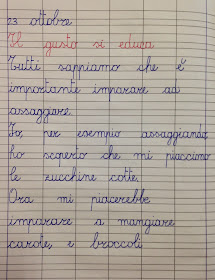 23 ottobre
Il gusto si educa
Tutti sappiamo che è
importante imparare ad
assaggiare.
Io, per esempio assaggiando
ho scoperto che mi piacciono
le zucchine cotte.
Ora mi piacerebbe
imparare a mangiare
carote, e broccoli